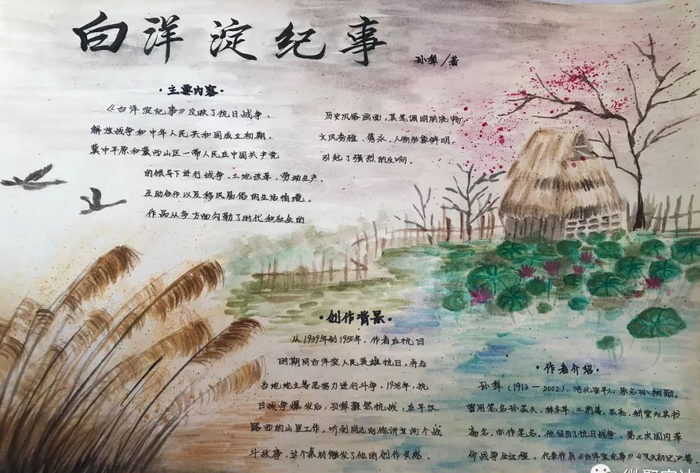 白洋淀纪事
孙犁/著
·主要内容·
《白洋淀纪事》反映了抗日战争、
解放战争和中华人民共和国成立初期,
冀中平原和冀西山区一带人民在中国共产党
的领导下进行战争、土地改革、劳动生产、
互助合作以及移风易俗的生活情境。
作品从多方面勾勒了时代和社会的
历史风俗画面,其笔调明丽流畅,
文风秀雅、隽永,人物形象鲜明,
引起了强烈的反响。
·创作背景·
从1939年到1950年,作者在抗日
时期用白洋淀人民英雄抗日,并与
当地地主等恶势力进行斗争,1938年,抗
日战争爆发后,孙犁毅然抗战,在平汉
路西的山里工作,听到同志向他讲里两个战
斗故事,这个素材触发了他的创作灵感。
·作者介绍·
孙犁(1913—2002),河北安平人,原名孙树勋,
曾用笔名孙芸夫、
高名,
何战争全过程,代表作有《白洋淀纪事》《风云初记》